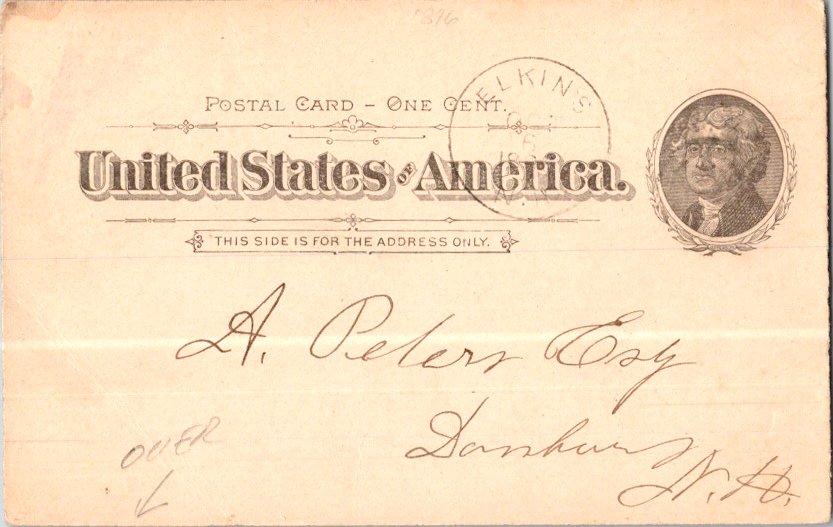 1896
POSTAL CARD – ONE CENT.
ELKINS
OCT
5
18
N.H.
United States of America.
THIS SIDE IS FOR THE ADDRESS ONLY.
A. Peters Esq
Danbury
N.H.
OVER